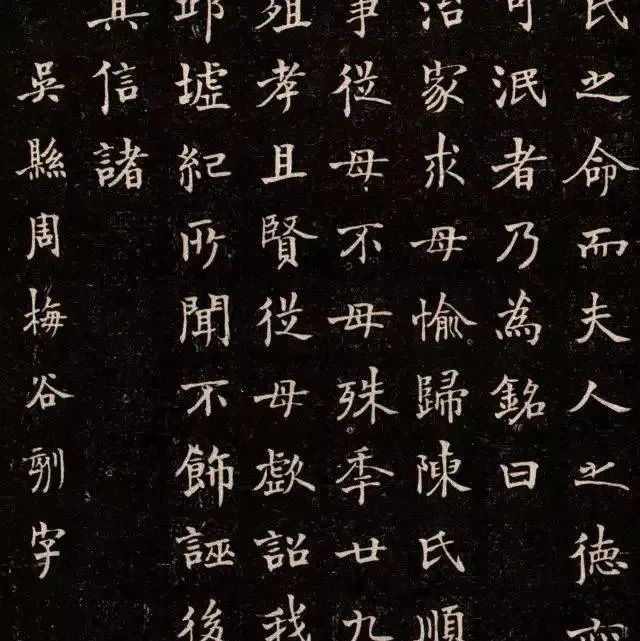 氏之命而夫人之德
可泯者乃為銘曰
治家求母愉歸陳氏順
事從母不母殊季廿九
殂孝且賢從母歔詔我
邱墟紀所聞不飾誣後
其信諸
吳縣周梅谷刻字